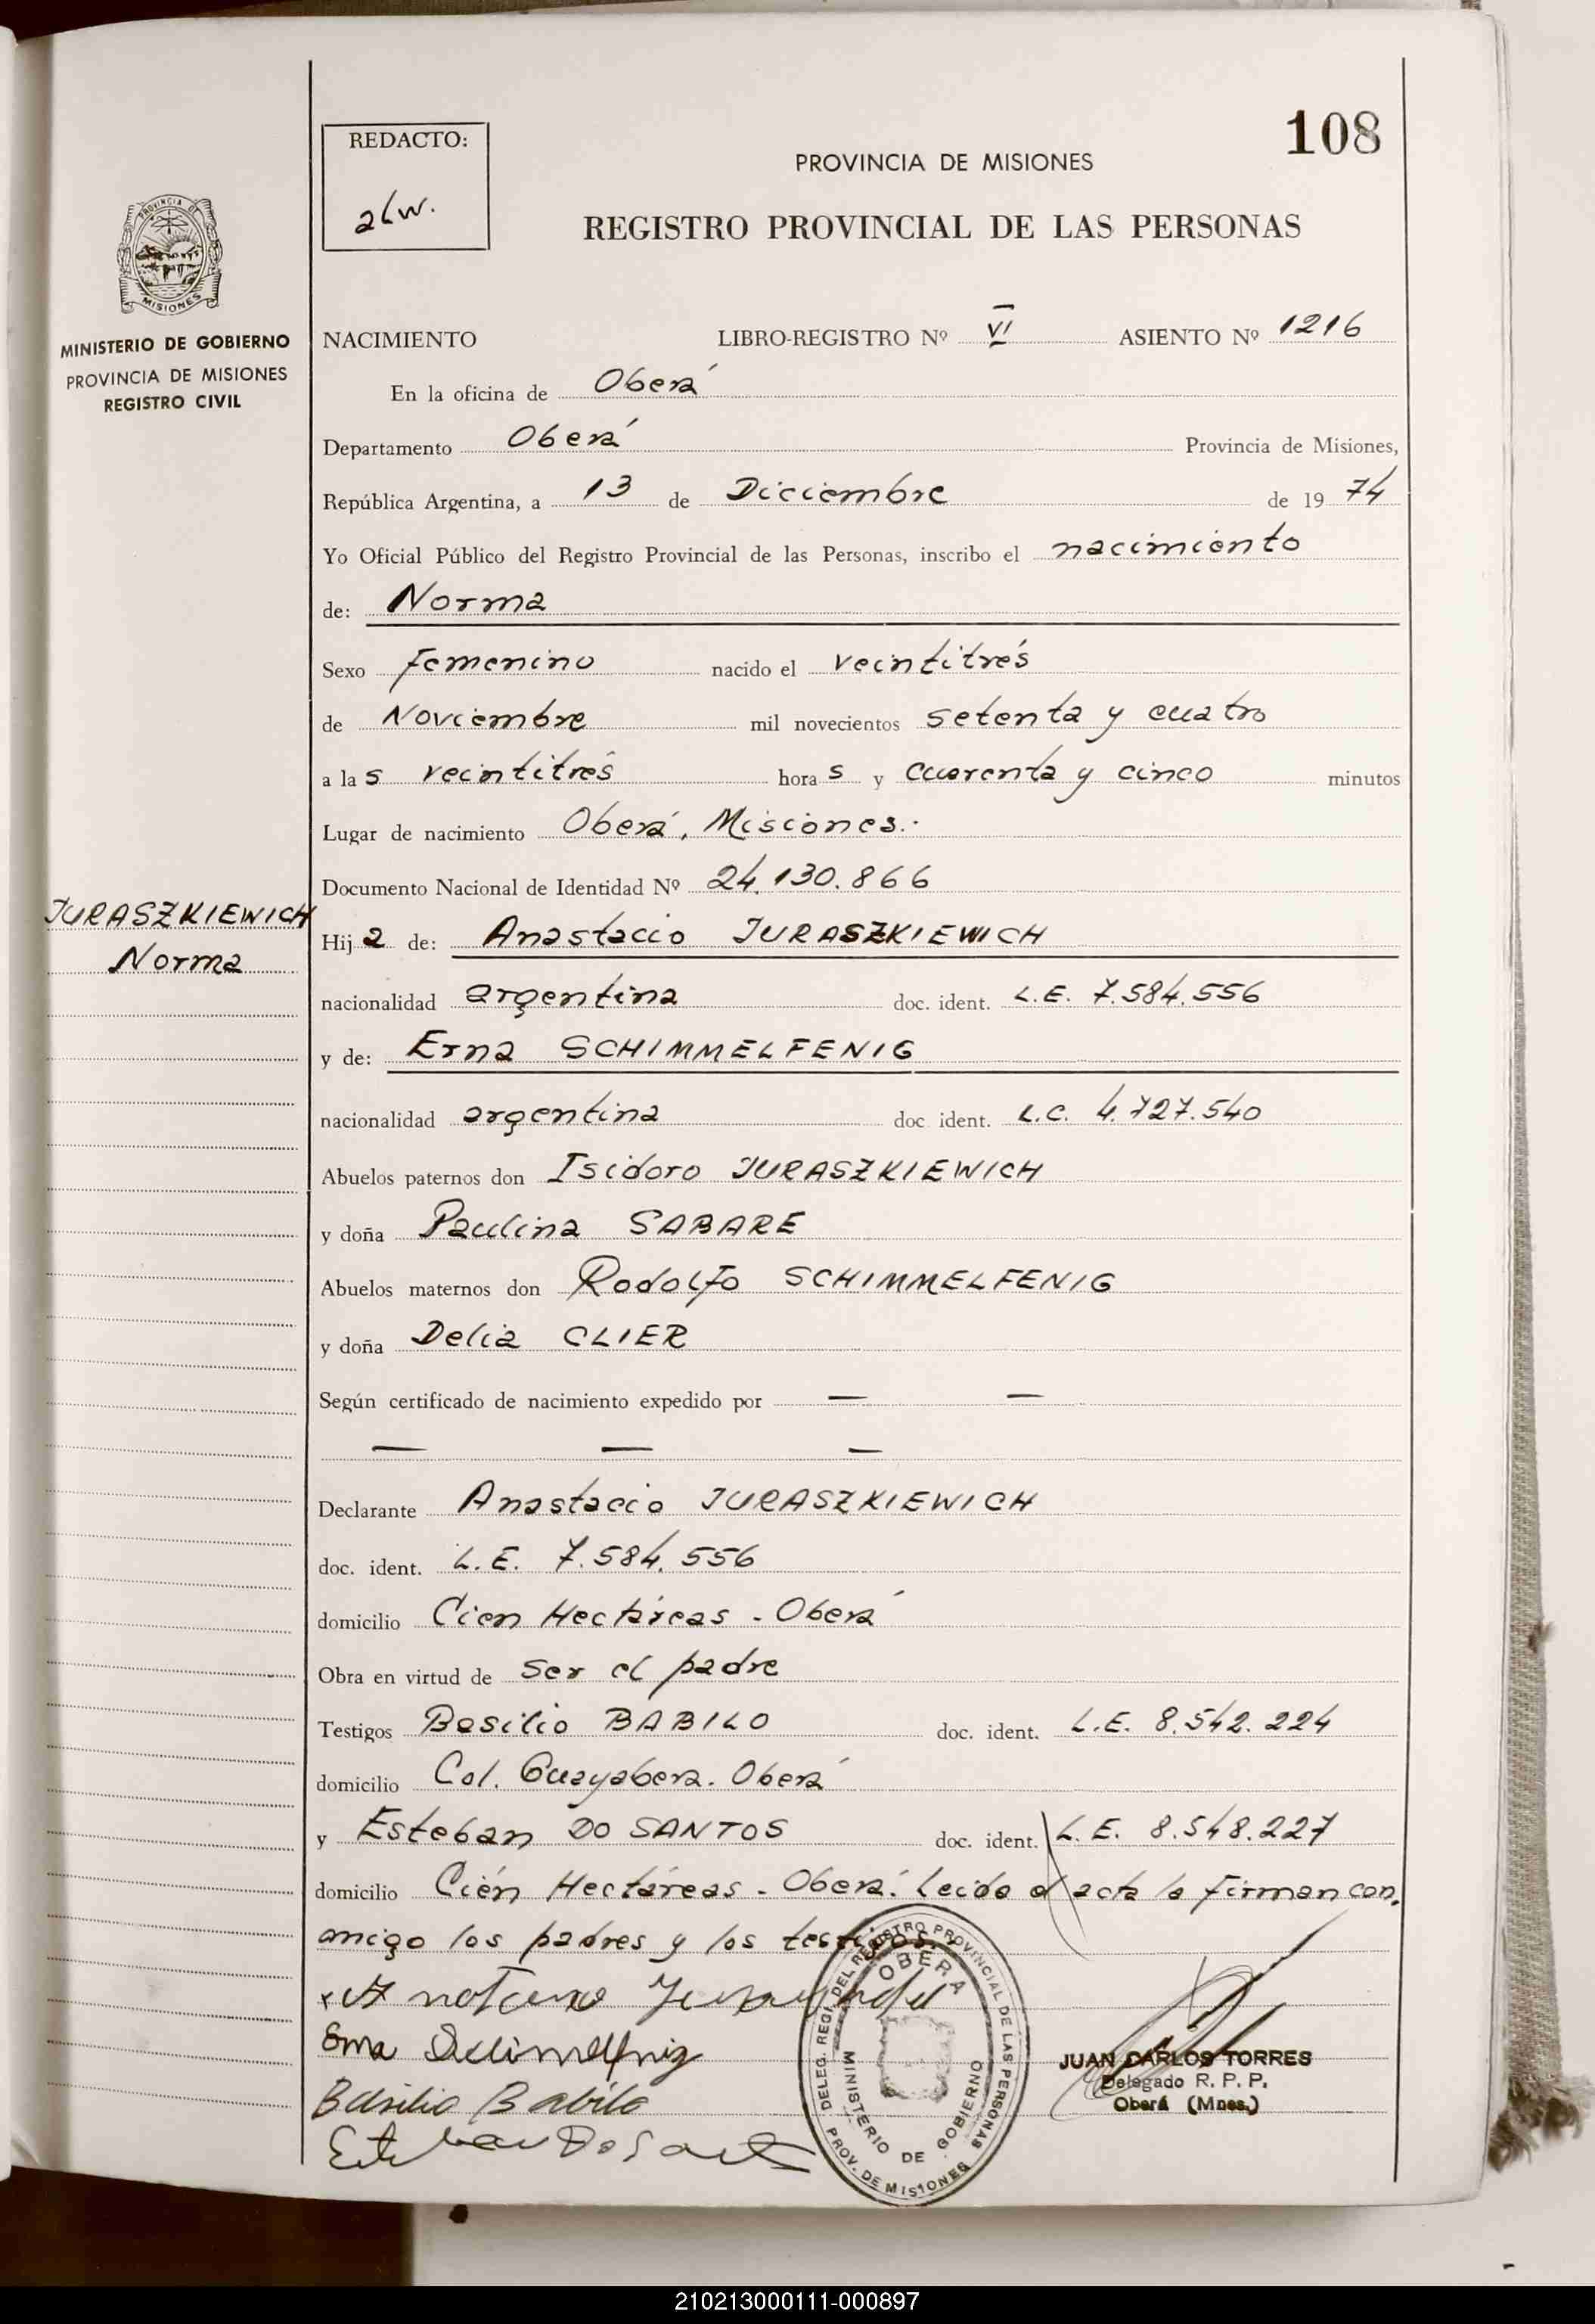 108
REDACTO:
alw.
PROVINCIA DE MISIONES
REGISTRO PROVINCIAL DE LAS PERSONAS
PROVINCIA DE
MISIONES
MINISTERIO DE GOBIERNO
PROVINCIA DE MISIONES
REGISTRO CIVIL
NACIMIENTO LIBRO-REGISTRO Nº VI ASIENTO Nº 1216
En la oficina de Oberá
Departamento Oberá Provincia de Misiones,
República Argentina, a 13 de Diciembre de 19 74
Yo Oficial Público del Registro Provincial de las Personas, inscribo el nacimiento
de: Norma
Sexo femenino nacido el veintitrés
de Noviembre mil novecientos setenta y cuatro
a las veintitrés horas y cuarenta y cinco minutos
Lugar de nacimiento Oberá, Misiones.-
Documento Nacional de Identidad Nº 24.130.866
JURASZKIEWICH
Norma
Hija de: Anastacio JURASZKIEWICH
nacionalidad argentina doc. ident. L.E. 7.584.556
y de: Erna SCHIMMELFENIG
nacionalidad argentina doc ident. L.C. 4.727.540
Abuelos paternos don Isidoro JURASZKIEWICH
y doña Paulina SABARE
Abuelos maternos don Rodolfo SCHIMMELFENIG
y doña Delia CLIER
Según certificado de nacimiento expedido por — —
— — —
Declarante Anastacio JURASZKIEWICH
doc. ident. L.E. 7.584.556
domicilio Cien Hectáreas - Oberá
Obra en virtud de ser el padre
Testigos Basilio BABILO doc. ident. L.E. 8.542.224
domicilio Col. Guayabera. Oberá
y Esteban DO SANTOS doc. ident. L.E. 8.548.227
domicilio Cién Hectáreas - Oberá. Leida el acta la firman con.
migo los padres y los testigos.
Basilio Babilo
Esteban Do Sant
DELEG. REGI. DEL REGISTRO PROVINCIAL DE LAS PERSONAS
OBERA
MINISTERIO DE GOBIERNO
PROV. DE MISIONES
JUAN CARLOS TORRES
Delegado R. P. P.
Oberá (Mnes.)
210213000111-000897